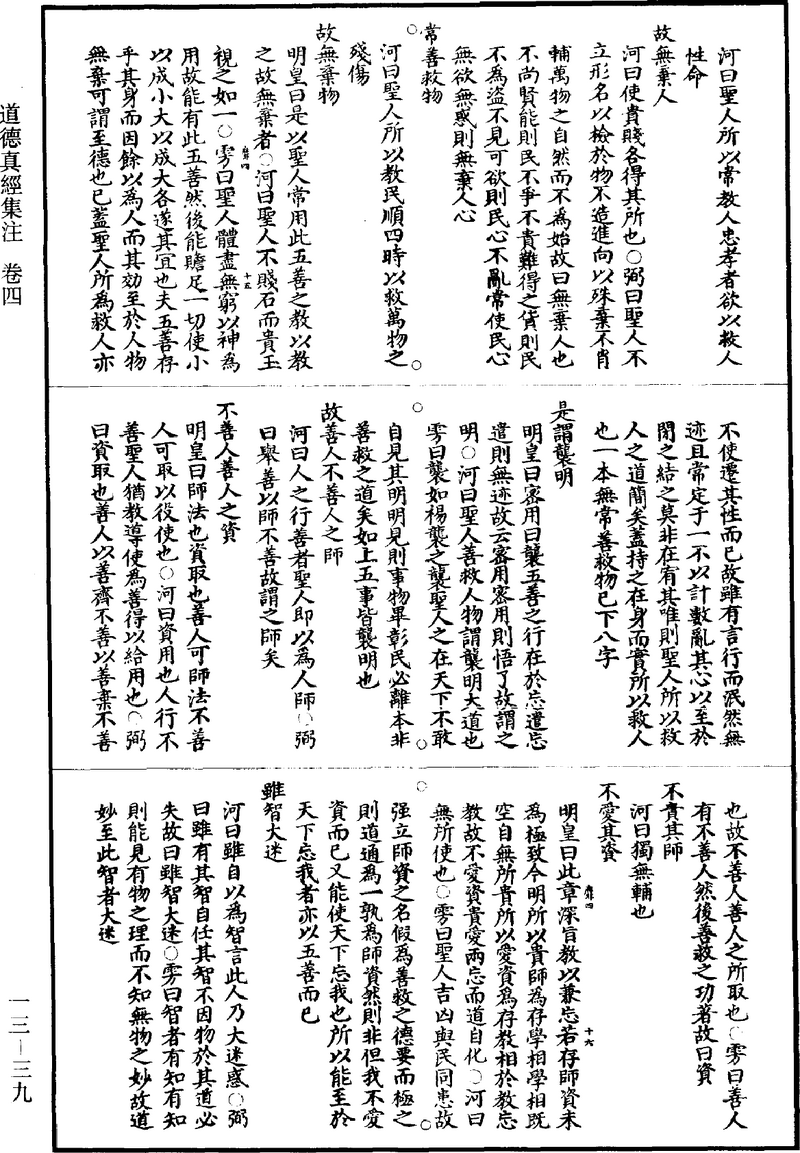 河曰聖人所以常教人忠孝者欲以救人
性命
故無棄人
河曰使貴賤各得其所也○弼曰聖人不
立形名以檢於物不造進向以殊棄不肖
輔萬物之自然而不為始故曰無棄人也
不尚賢能則民不爭不貴難得之貨則民
不為盜不見可欲則民心不亂常使民心
無欲無惑則無棄人心
常善救物
河曰聖人所以教民順四時以救萬物之
殘傷
故無棄物
明皇曰是以聖人常用此五善之教以教
之故無棄者○河曰聖人不賤石而貴玉
視之如一○雱曰聖人體盡無窮以神為
用故能有此五善然後能贍足一切使小
以成小大以成大各遂其宜也夫五善存
乎其身而因餘以為人而其効至於人物
無棄可謂至德也已蓋聖人所為救人亦
不使遷其性而已故雖有言行而泯然無
迹且常定于一不以計數亂其心以至於
閉之結之莫非在宥其唯則聖人所以救
人之道簡矣蓋持之在身而實所以救人
也一本無常善救物已下八字
是謂襲明
明皇曰密用曰襲五善之行在於忘遣忘
遣則無迹故云密用密用則悟了故謂之
明○河曰聖人善救人物謂襲明大道也
雱曰襲如楊襲之襲聖人之在天下不敢
自見其明明見則事物畢彰民必離本非
善救之道矣如上五事皆襲明也
故善人不善人之師
河曰人之行善者聖人即以為人師○弼
曰舉善以師不善故謂之師矣
不善人善人之資
明皇曰師法也資取也善人可師法不善
人可取以役使也○河曰資用也人行不
善聖人猶教導使為善得以給用也○弼
曰資取也善人以善齊不善以善棄不善
也故不善人善人之所取也○雱曰善人
有不善人然後善救之功著故曰資
不貴其師
河曰獨無輔也
不愛其資
明皇曰此章深旨教以兼忘若存師資未
為極致今明所以貴師為存學相學相既
空自無所貴所以愛資為存教相於教忘
教故不愛資貴愛兩忘而道自化○河曰
無所使也○雱曰聖人吉凶與民同患故
强立師資之名假為善救之德要而極之
則道通為一孰為師資然則非但我不愛
資而已又能使天下忘我也所以能至於
天下忘我者亦以五善而已
雖智大迷
河曰雖自以為智言此人乃大迷惑○弼
曰雖有其智自任其智不因物於其道必
失故曰雖智大迷○雱曰智者有知有知
則能見有物之理而不知無物之妙故道
妙至此智者大迷
道德真經集注　卷四
一三－三九